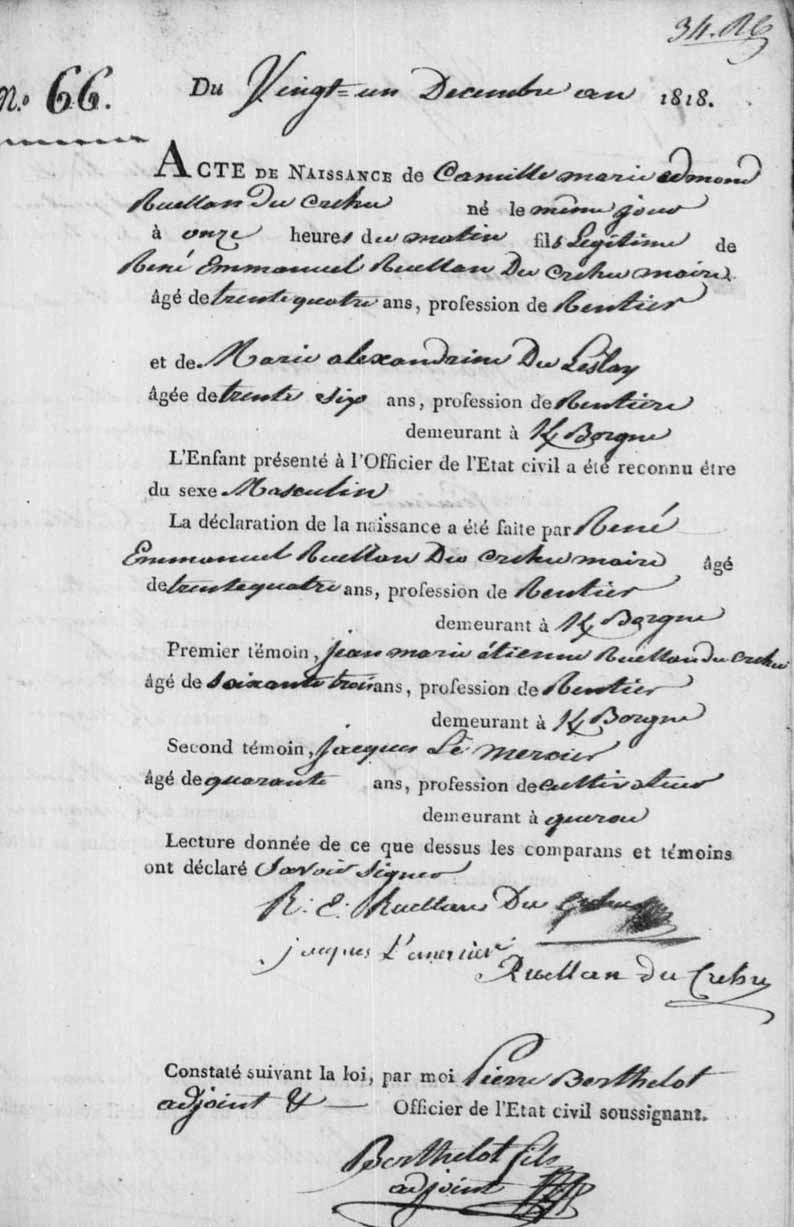 34.
N.o 66. Du Vingt=un Decembre an 1818.
ACTE DE NAISSANCE de Camille marie edmond
Ruellan Du Crehu né le même jour
à onze heures du matin fils Legitime de
René Emmanuel Ruellan Du Crehu maire
âgé de trente quatre ans, profession de Rentier
et de Marie alexandrine Du Leslay
âgée de trente six ans, profession de Rentiere
demeurant à K/Borgne
L'Enfant présenté à l'Officier de l'Etat civil a été reconnu être
du sexe Masculin
La déclaration de la naissance a été faite par René
Emmanuel Ruellan Du Crehu maire âgé
de trente quatre ans, profession de Rentier
demeurant à K/Borgne
Premier témoin, jean marie étienne Ruellan du Crehu
âgé de soixante trois ans, profession de Rentier
demeurant à K/Borgne
Second témoin, jacques Le mercier
âgé de quarante ans, profession de cultivateur
demeurant à querou
Lecture donnée de ce que dessus les comparans et témoins
ont déclaré Savoir signer
R. E. Ruellan Du Crehu
jacques L'emercier
Ruellan du Crehu
Constaté suivant la loi, par moi Pierre Berthelot
adjoint & — Officier de l'Etat civil soussignant.
Berthelot fils
adjoint